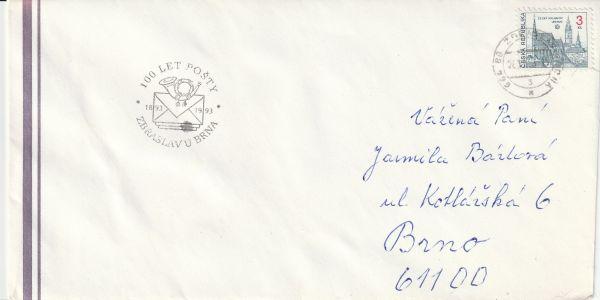 100 LET POŠTY
1893 1993
ZBRASLAV U BRNA
ČESKÁ REPUBLIKA
3
Vážená Paní
Jarmila Bártová
ul Kotlářská 6
Brno
61100